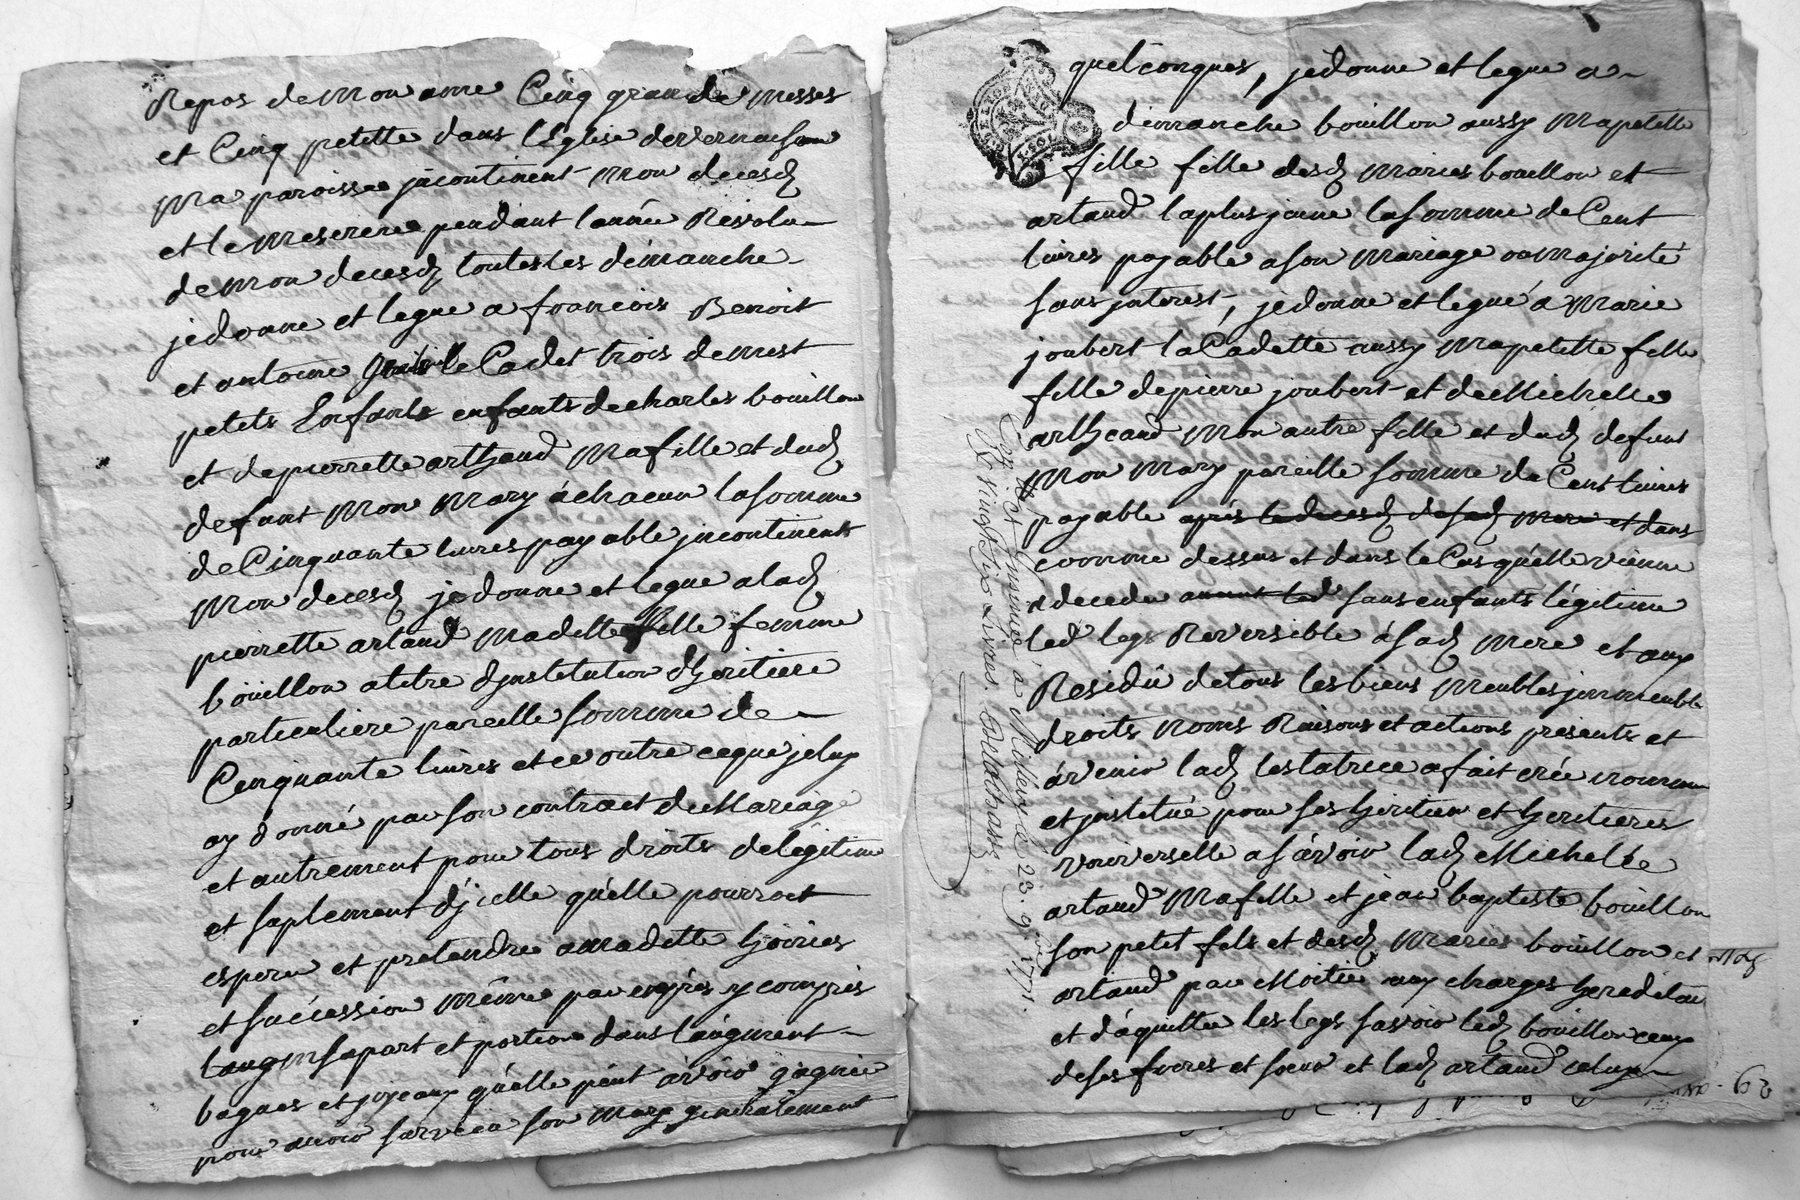 Repos de mon ame Cinq grande messes
et Cinq petitte dans l'Eglise de vernaison
ma paroisse jncontinent mon decesd
et le meserere pendant lannée Revolu
de mon decesd toutes les dimanche
je donne et legue a francois Benoit
et antoine le Cadet trois de mest
petits Enfants enfants de charles bouillon
et de pierrette arthaud ma fille et dud
defunt mon mary à chacun la somme
de Cinquante livres payable jncontinent
mon decesd je donne et legue a lad
pierrette artaud maditte fille femme
bouillon a titre d'jnstitution d'heritiere
particuliere pareille somme de
Cinquante livres et ce outre ce que je luy
ay donné par son contract de Mariage
et autrement pour tous droits de légitime
et suplement d'jcelle quélle pourroit
esperer et pretendre a maditte hoiries
et succession même par exprès y compris
sa part et portion dans l'augment
bagues et joyeaux quélle peut avoir gagnée
pour avoir survécu son mary generalement
quelconques, je donne et legue a
dimanche bouillon aussy ma petitte
fille fille desd maries bouillon et
artaud la plus jeune la somme de Cent
livres payable a son mariage ou majorité
sans jnterest, je donne et legue a Marie
joubert la Cadette aussy ma petitte fille
fille de pierre joubert et de Michelle
artheaud mon autre fille et dud defunt
mon mary pareille somme de Cent livres
payable après le decesd de sad mere et dans
comme dessus et dans le Cas quélle vienne
a deceder avant led sans enfants légitime
led legs Reversible à sad mere et aux
Residû de tous les biens meubles jmmeuble
droits noms Raisons et actions presents et
avenir lad testatrice a fait crée nommé
et jnstitué pour ses heritier et heritieres
universelle a savoir lad Michelle
artaud ma fille et jean baptiste bouillon
son petit fils et desd maries bouillon et
artaud par Moitié aux charges hereditaires
et d'aquitter les legs savoir led bouillon ceux
de ses freres et soeur et lad artaud celuy
Insinué à le 23. 9bre 1771.
vingt six Livres.
63